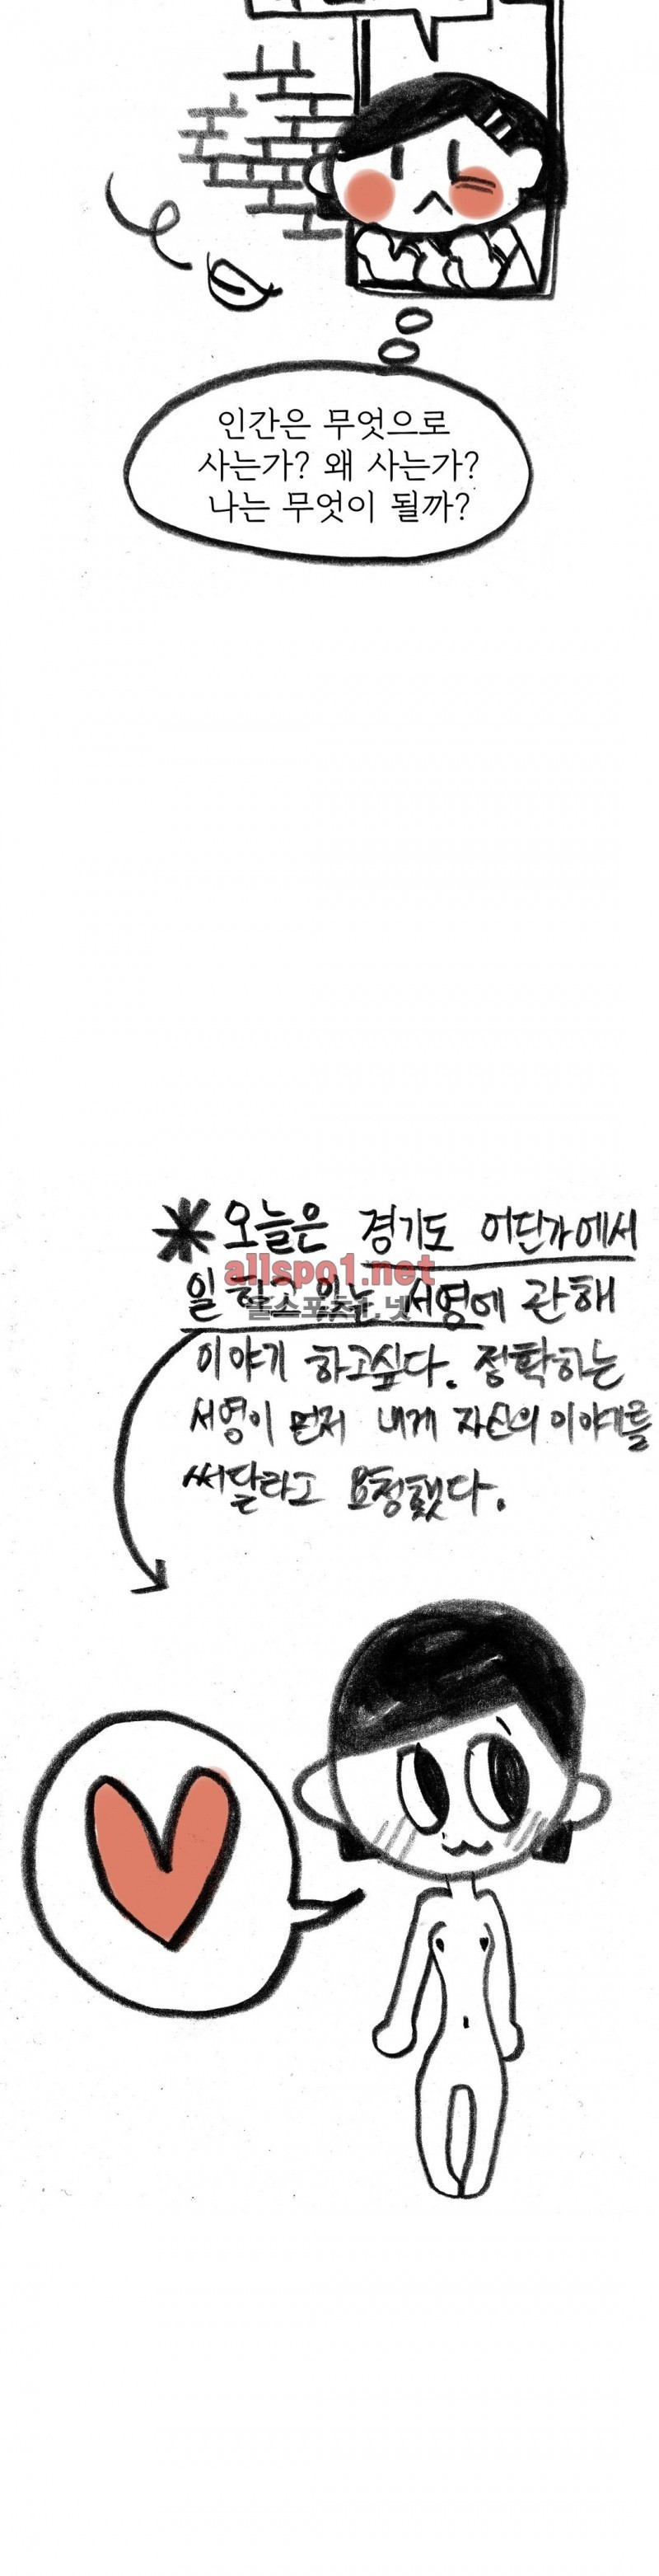 인간은 무엇으로
사는가? 왜 사는가?
나는 무엇이 될까?
*오늘은 경기도 어딘가에서
allspo1.net
올스포츠1.넷
일하고 있는 서영에 관해
이야기 하고싶다. 정확하는
서영이 먼저 내게 자신의 이야기를
써달라고 요청했다.